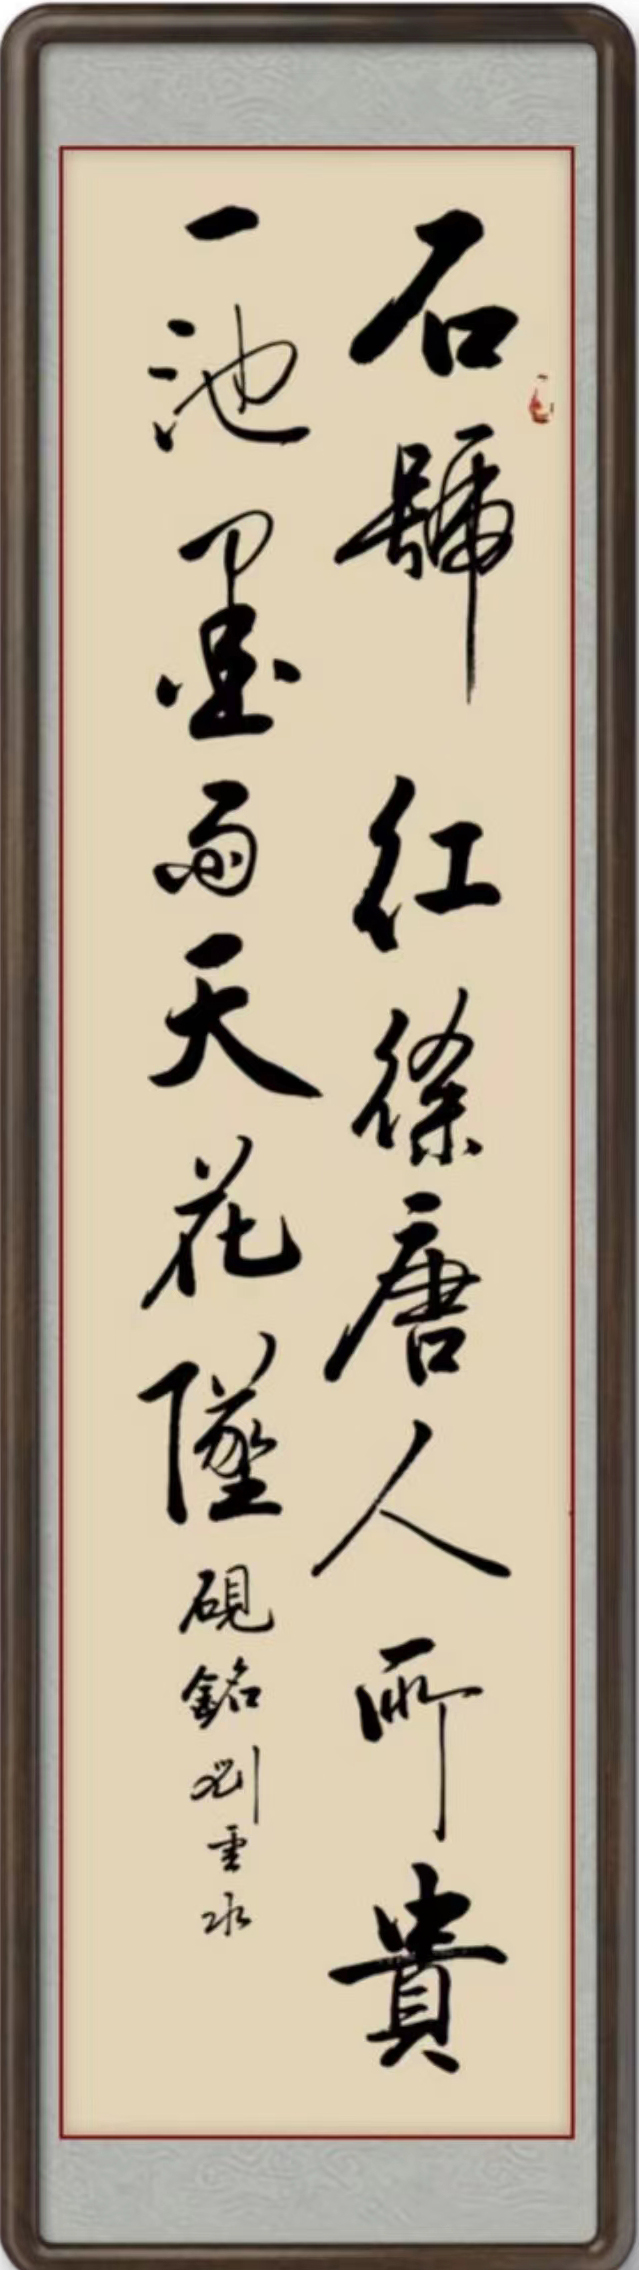 石號紅絲唐人所貴
一池墨雨天花墜硯銘劉雲水